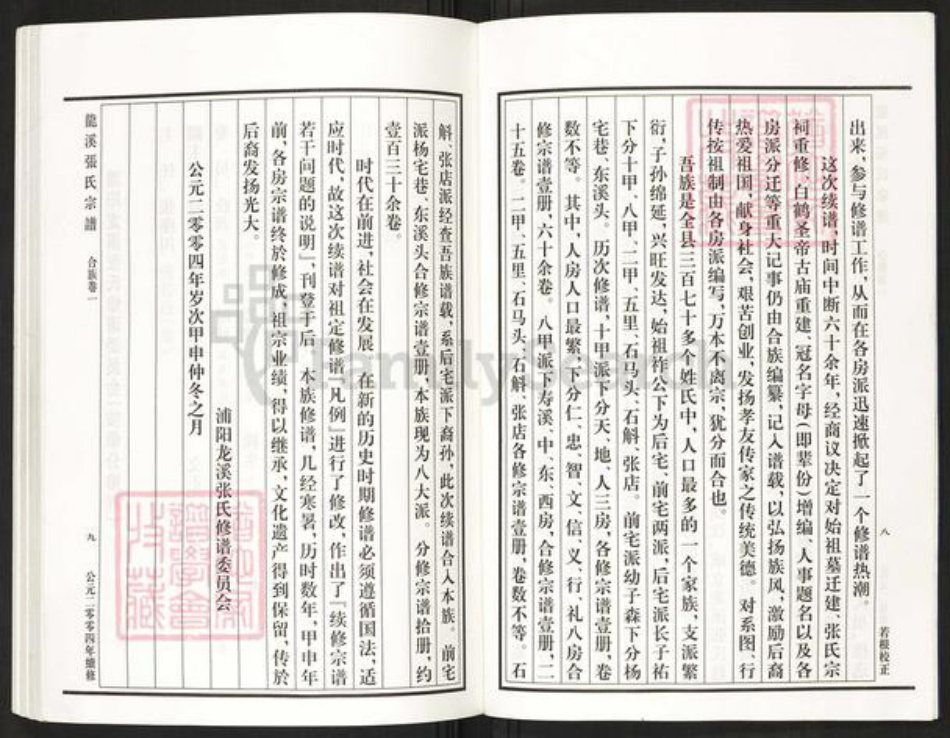 出来，参与修谱工作，从而在各房派迅速掀起了一个修谱热潮。
这次续谱，时间中断六十余年，经商议决定对始祖墓迁建、张氏宗
祠重修、白鹤圣帝古庙重建、冠名字母（即辈份）增编、人事题名以及各
房派分迁等重大记事仍由合族编纂，记入谱载，以弘扬族风，激励后裔
热爱祖国，献身社会，艰苦创业，发扬孝友传家之传统美德。对系图、行
传按祖制由各房派编写，万本不离宗，犹分而合也。
吾族是全县三百七十多个姓氏中，人口最多的一个家族，支派繁
衍，子孙绵延，兴旺发达，始祖祚公下为后宅、前宅两派，后宅派长子祐
下分十甲、八甲、二甲、五里、石马头、石斛、张店。前宅派幼子森下分杨
宅巷、东溪头。历次修谱，十甲派下分天、地、人三房，各修宗谱壹册，卷
数不等。其中，人房人口最繁，下分仁、忠、智、文、信、义、行、礼八房合
修宗谱壹册，六十余卷。八甲派下寿溪、中、东、西房，合修宗谱壹册，二
十五卷。二甲、五里、石马头、石斛、张店各修宗谱壹册，卷数不等。石
八
若根校正
斛、张店派经查吾族谱载，系后宅派下裔孙，此次续谱合入本族。前宅
派杨宅巷、东溪头合修宗谱壹册，本族现为八大派。分修宗谱拾册，约
壹百三十余卷。
时代在前进，社会在发展。在新的历史时期修谱必须遵循国法，适
应时代，故这次续谱对祖定修谱『凡例』进行了修改，作出了『续修宗谱
若干问题的说明』，刊登于后。本族修谱，几经寒暑，历时数年，甲申年
前，各房宗谱终於修成，祖宗业绩，得以继承，文化遗产得到保留，传於
后裔发扬光大。
浦阳龙溪张氏修谱委员会
公元二零零四年岁次甲申仲冬之月
龍溪張氏宗譜 合族卷一
九
公元二零零四年续修
familysearch